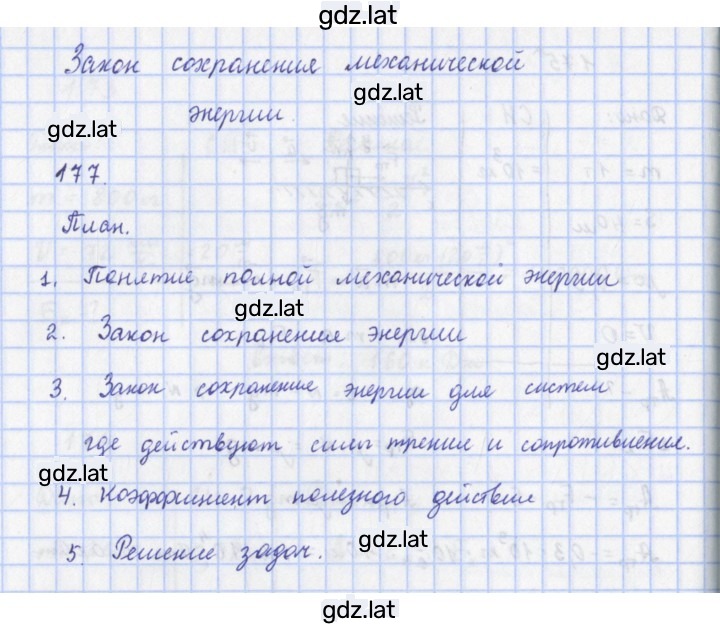 gdz.lat
Закон сохранения механической
gdz.lat
энергии.
gdz.lat
177.
План.
1. Понятие полной механической энергии
gdz.lat
2. Закон сохранения энергии
gdz.lat
3. Закон сохранения энергии для систем
где действуют силы трения и сопротивления.
gdz.lat
4. Коэффициент полезного действия
5. Решение задач.
gdz.lat
gdz.lat